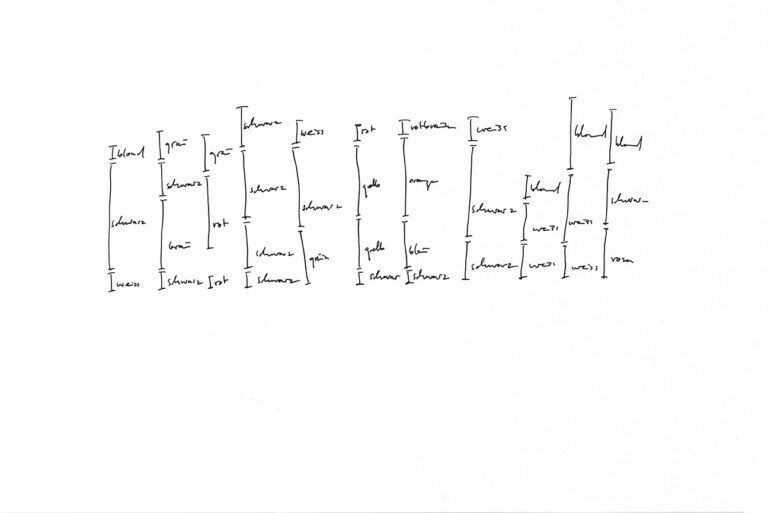 blond
schwarz
weiss
grau
schwarz
braun
schwarz
grau
rot
rot
schwarz
schwarz
schwarz
schwarz
weiss
schwarz
grün
rot
gelb
gelb
schwarz
rotbraun
orange
blau
schwarz
weiss
schwarz
schwarz
blond
weiss
weiss
blond
weiss
weiss
blond
schwarz
rosa